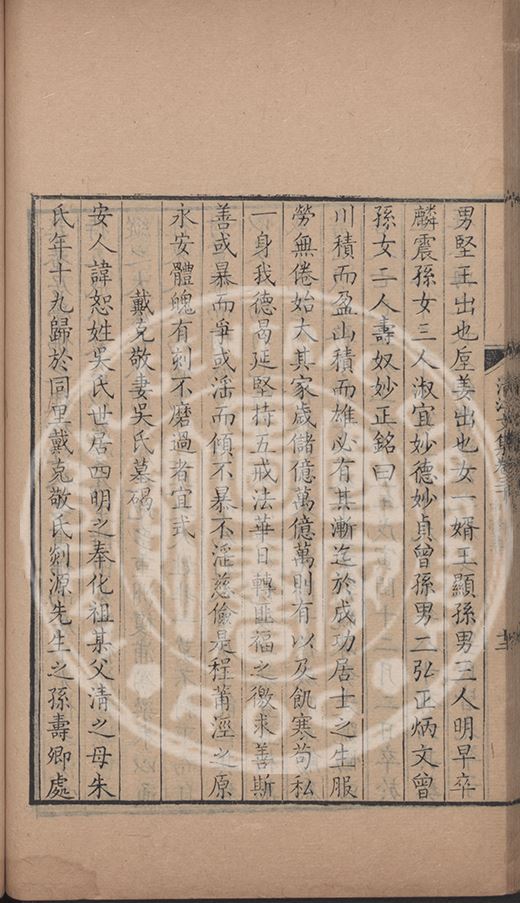 男堅王出也垕姜出也女一婿王顯孫男三人明早卒
麟震孫女三人淑宜妙德妙貞曾孫男二弘正炳文曾
孫女二人壽奴妙正銘曰
川積而盈山積而雄必有其漸迄於成功居士之生服
勞無倦始大其家歲儲億萬億萬則有以及飢寒苟私
一身我德曷延堅持五戒法華日轉匪福之徼求善斯
善或暴而爭或滛而傾不暴不滛慈儉是程莆涇之原
永安體魄有刻不磨過者宜式
戴克敬妻吳氏墓碣
安人諱恕姓吳氏世居四明之奉化祖某父清之母朱
氏年十九歸於同里戴克敬氏剡源先生之孫壽卿處